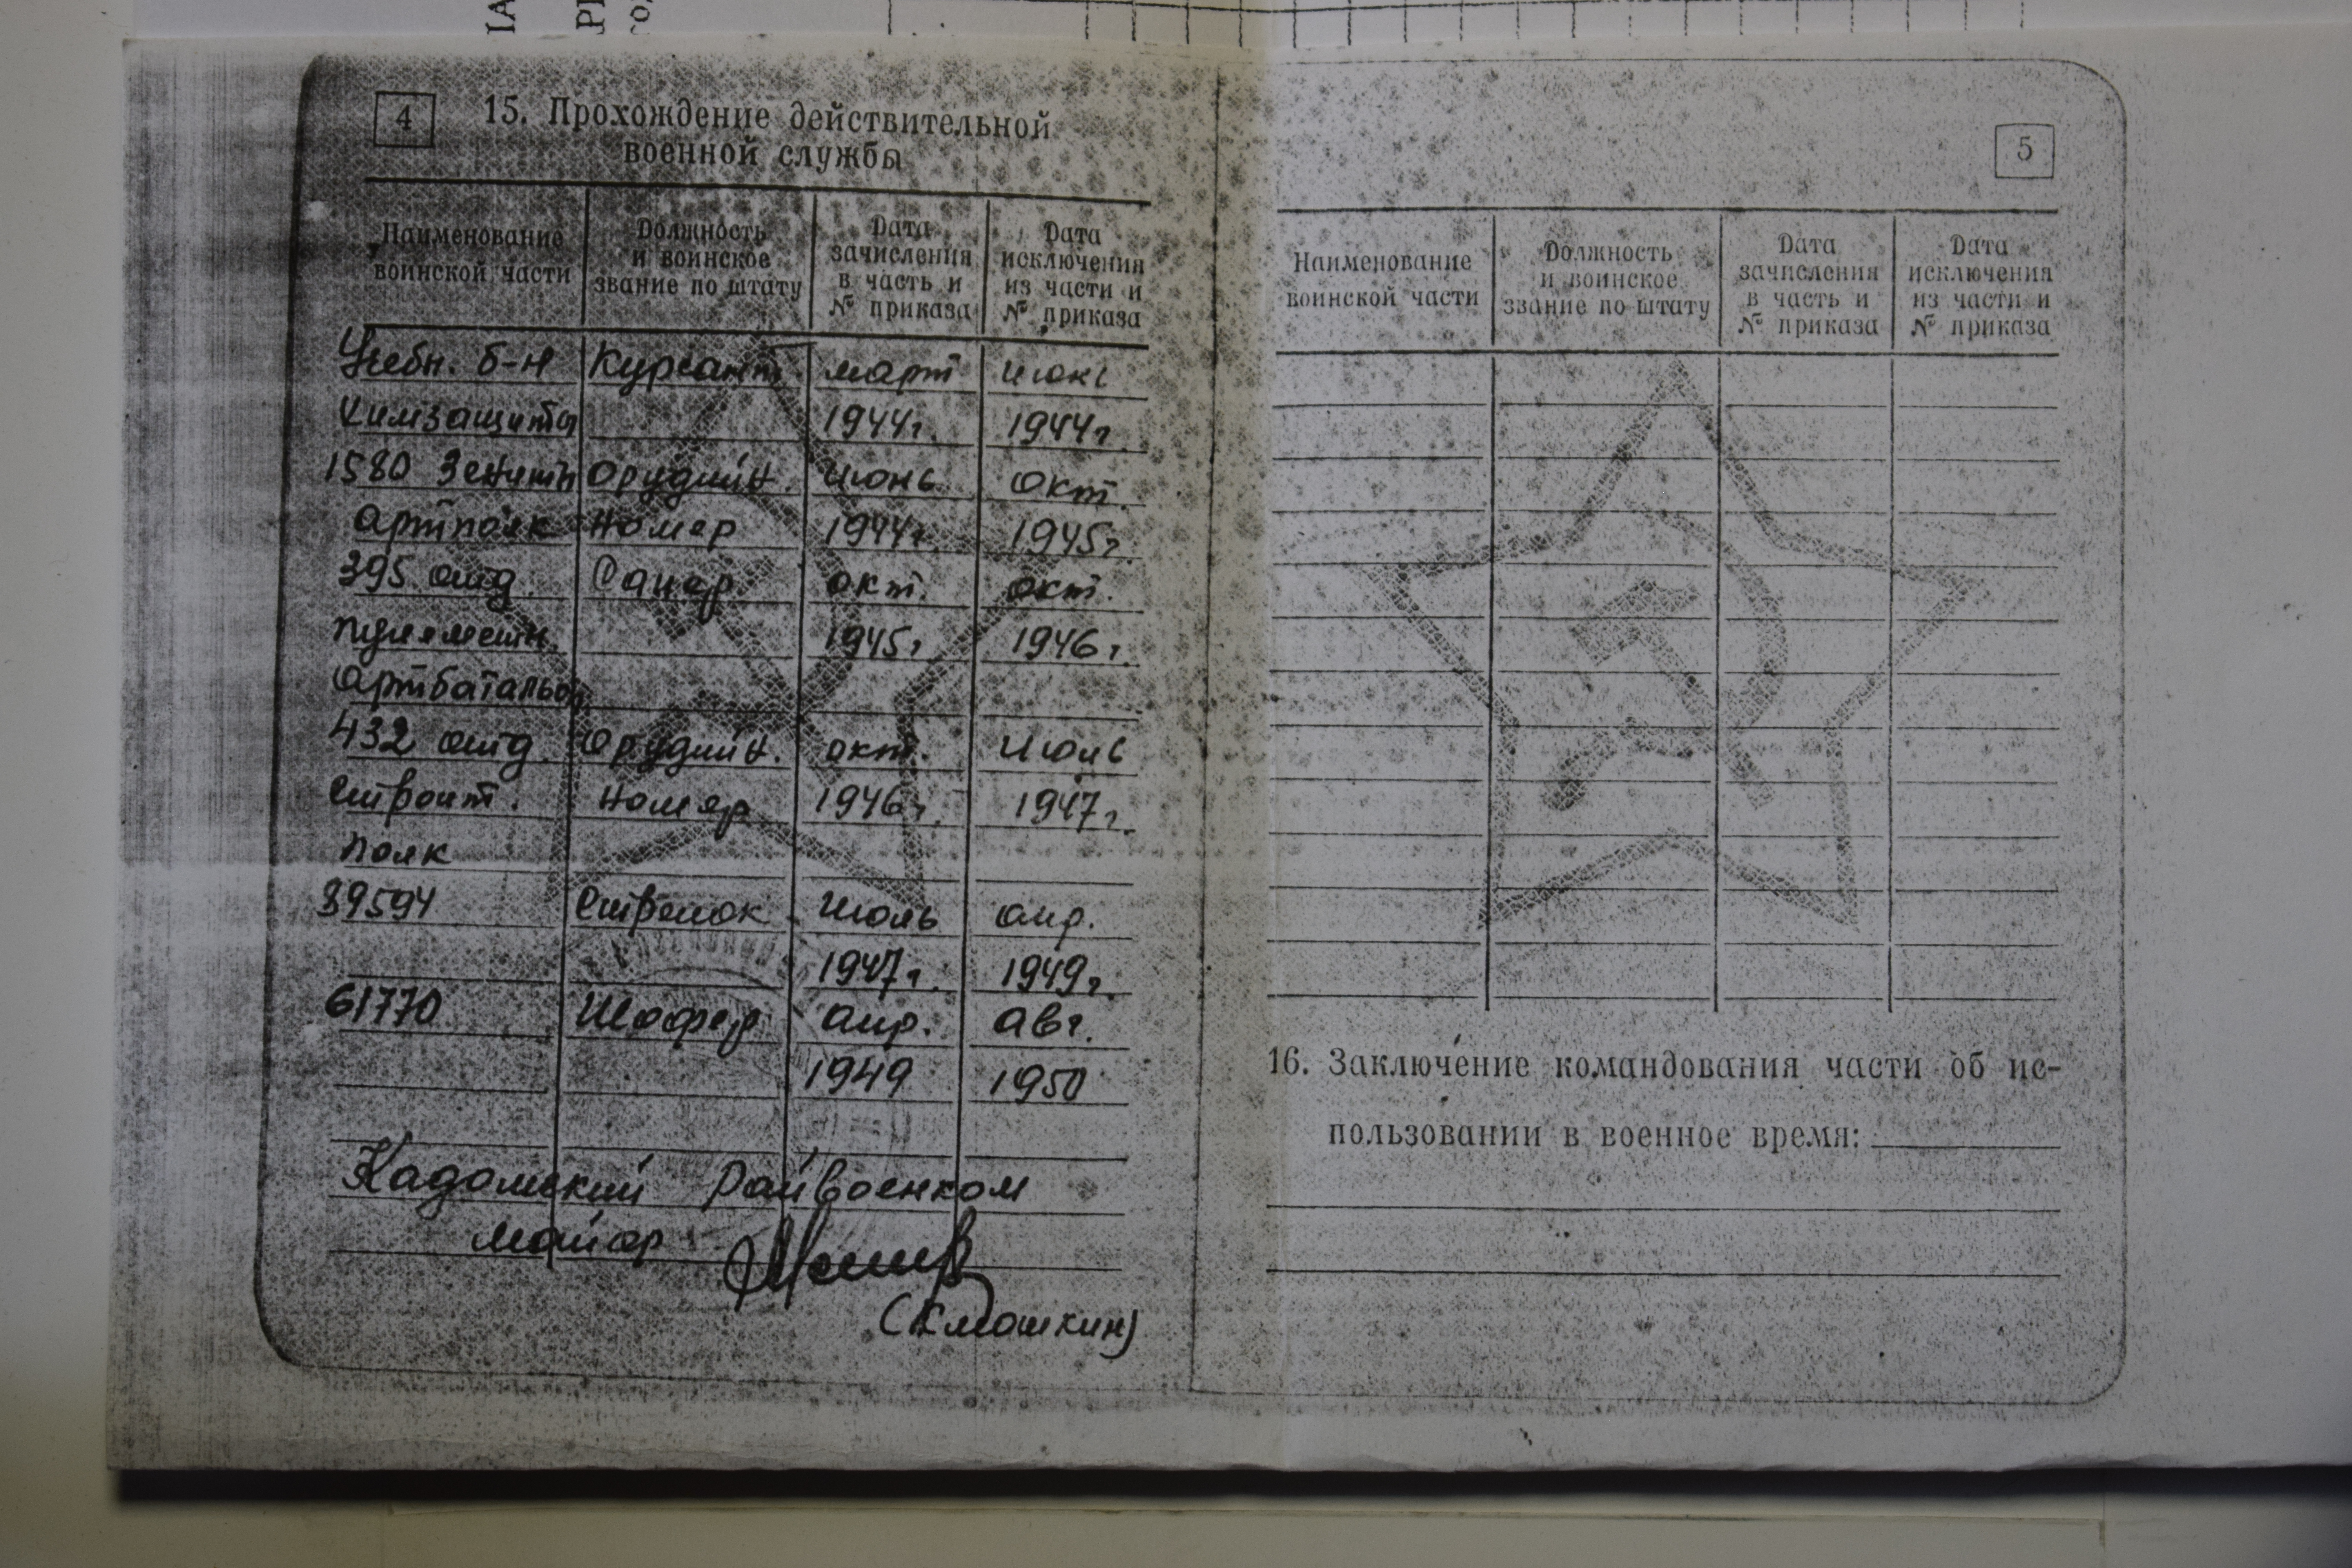 4
15. Прохождение действительной
военной службы
Наименование воинской части
Должность и воинское звание по штату
Дата зачисления в часть и № приказа
Дата исключения из части и № приказа
Учебн. б-н Курсант март июнь
химзащиты 1944г. 1944г.
1580 Зенитн Орудийн. Июнь окт.
артполк Номер 1944г. 1945г.
395 отд. Сапер окт. окт.
пулеметн. 1945г 1946г.
Артбатальон
432 отд. Орудийн. окт. Июль
Строит. Номер 1946г. 1947г.
полк
39594 Стрелок Июль апр.
1947г. 1949г.
61770 Шофер апр. Авг.
1949 1950
Кадомский Райвоенком
майор
5
Наименование воинской части
Должность и воинское звание по штату
Дата зачисления в часть и № приказа
Дата исключения из части и № приказа
16. Заключение командования части об ис-
пользовании в военное время: